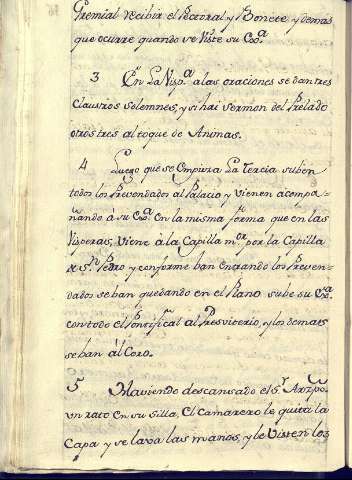 Gremial recibir el Pectoral y Bonete y demas
que ocurre quando se Viste su Exª
3 En La Vispª a las oraciones se dan tres
Clausros solemnes, y si hai sermon del Prelado
otros tres al toque de Animas.
4 Luego que se Empieza La Tercia suben
todos los Prevendados al Palacio y vienen acompa-
ñando à su Exª En la misma fᵒrma que en las
Visperas, viene à la Capilla mᵒʳ por la Capilla
de Sⁿ Pedro y conforme han entrando los Preven-
dados se han quedando en el Plano sube su Exª
con todo el Pontifᶜal al Presviterio, y los demas
se han àl Coro.
5 Haviendo descansado el Sʳ Arzpᵒ
un rato en su silla, El Camarero le quita la
Capa y se lava las manos, y le Visten los